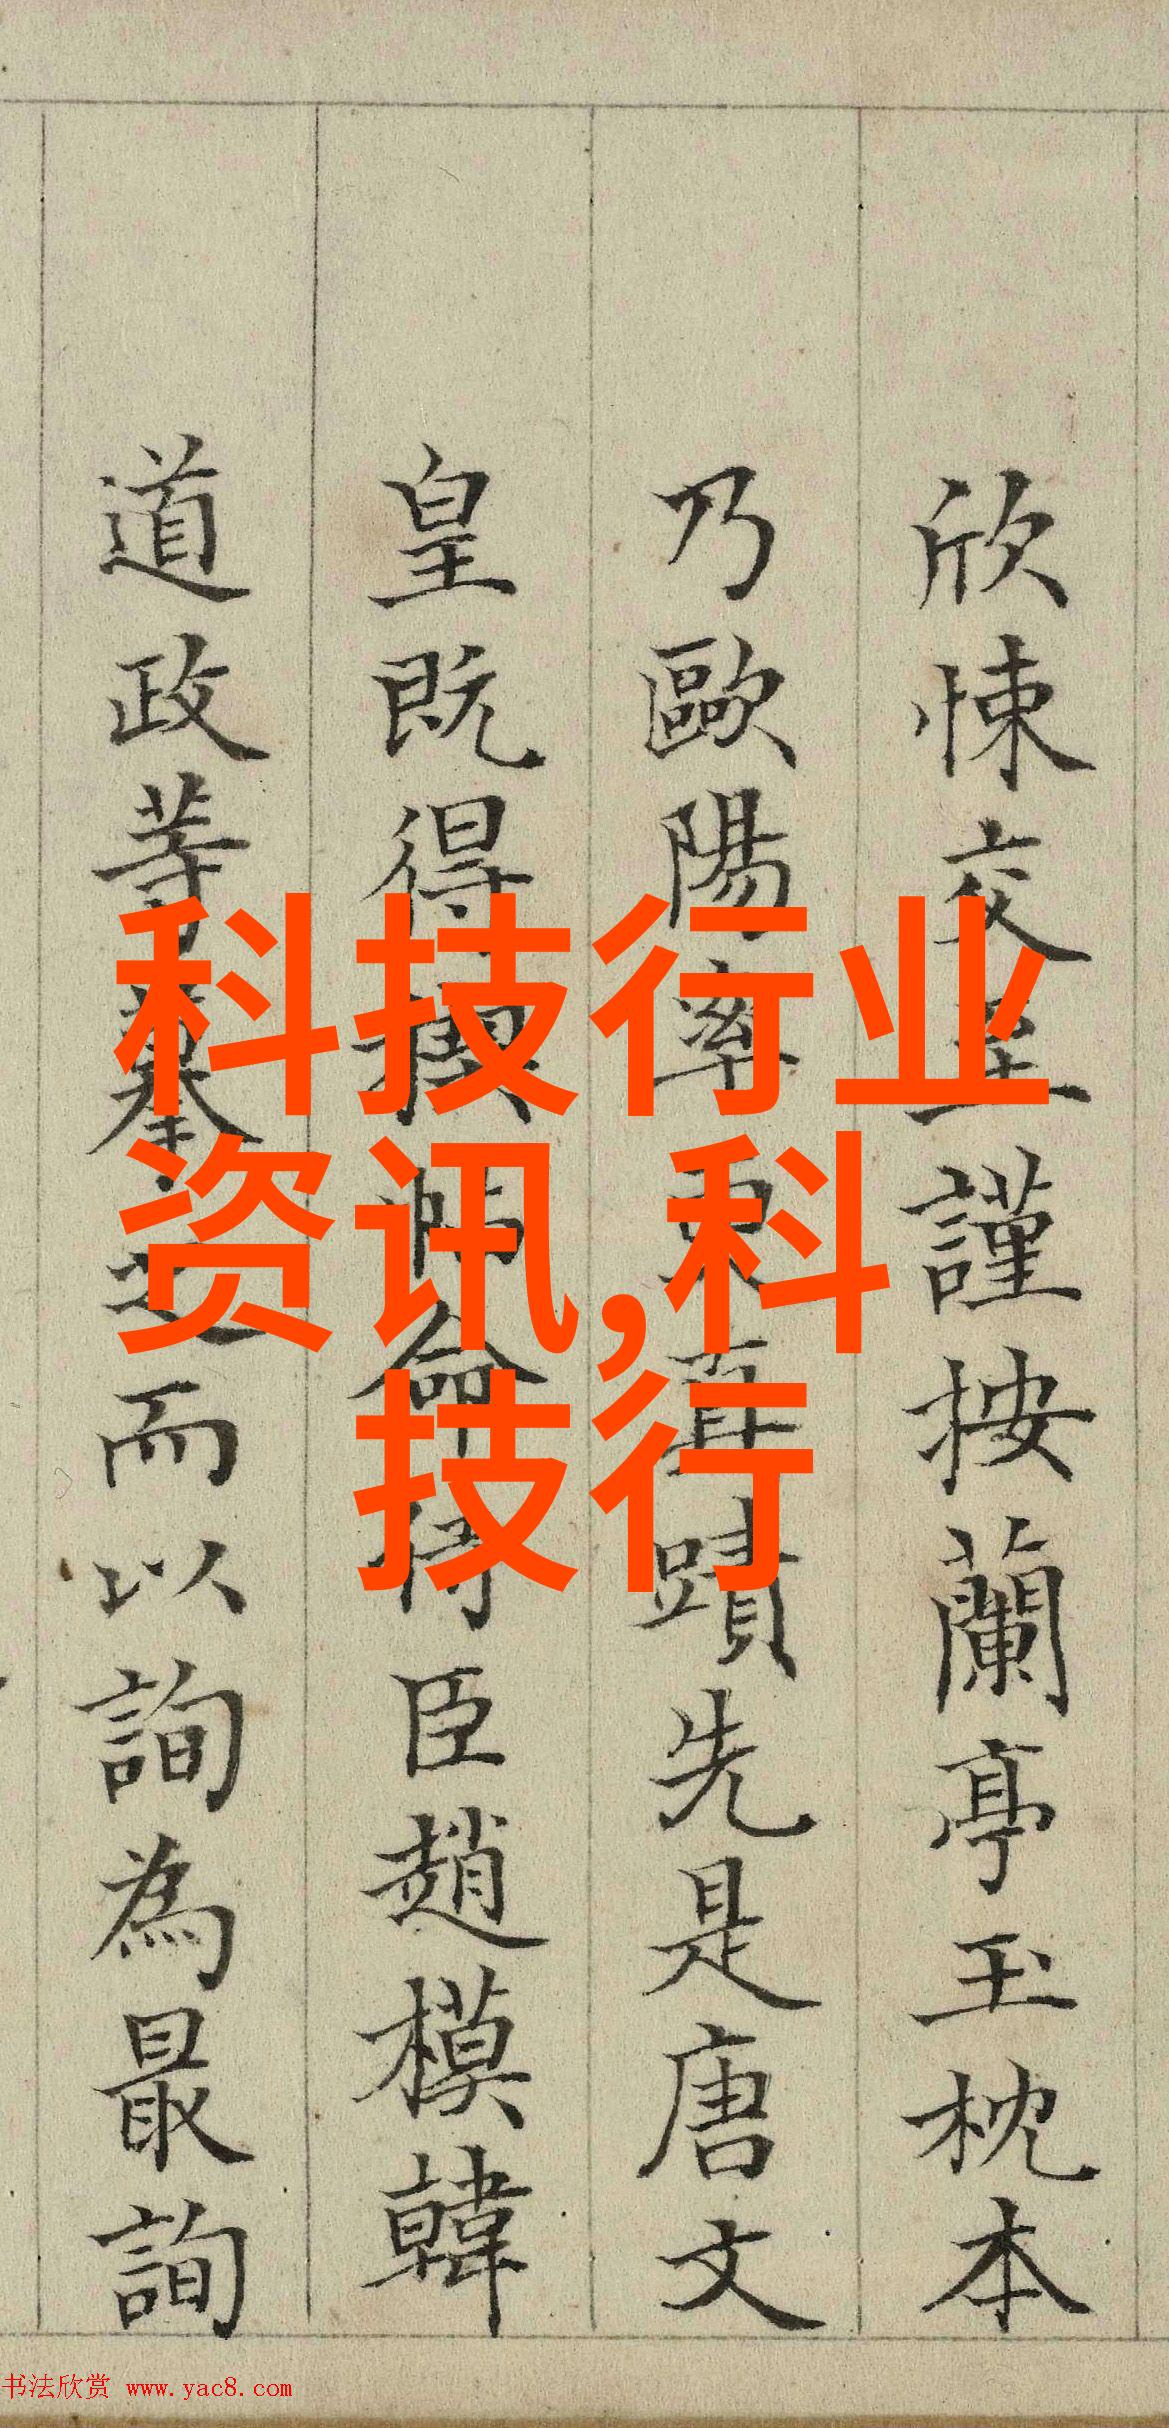 科技行业
资讯,科
技行
欣悚交至謹按蘭亭玉枕本
乃歐陽率更真蹟先是唐文
皇既得禊帖命侍臣趙模韓
道政等摹之而以詢為最詢
书法欣赏 www.yac8.com